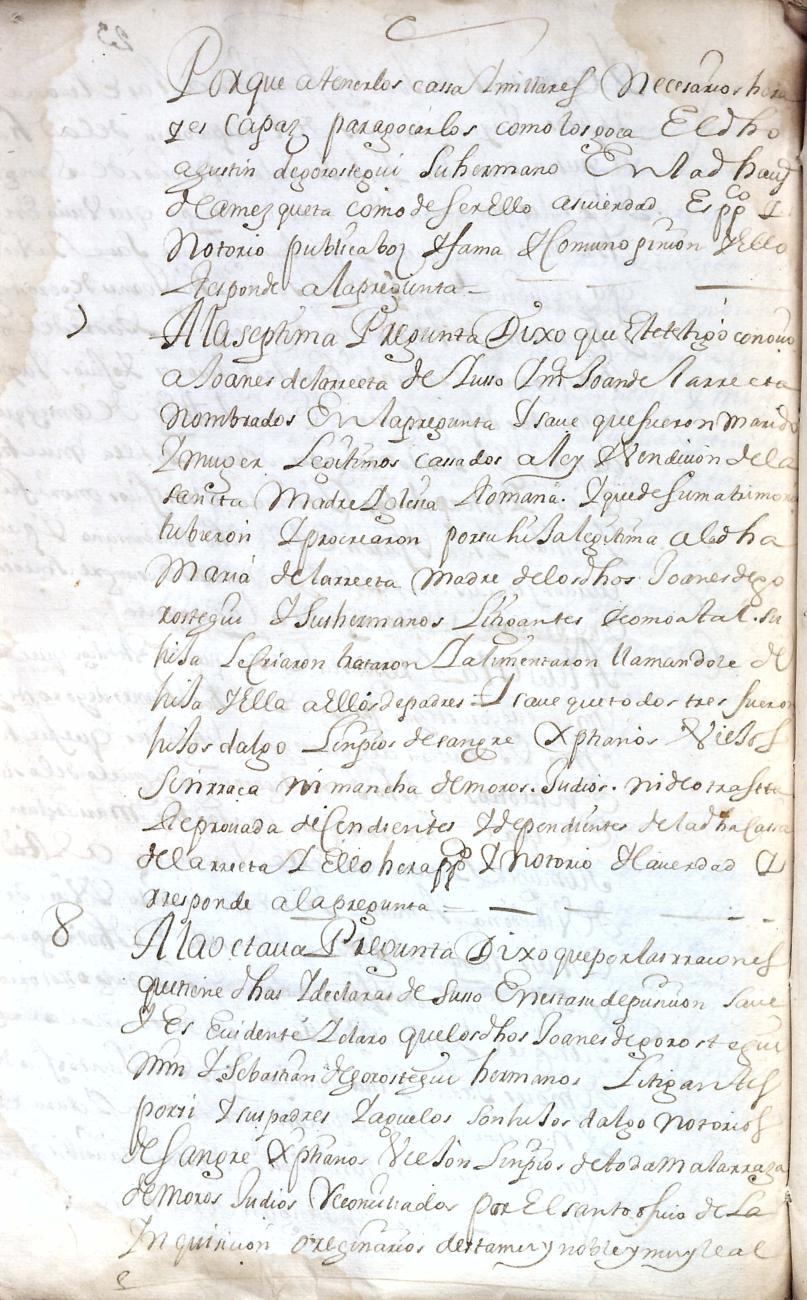 Porque a tenerlos cassa Y millares Necesarios hera
y es Capaz para goçarlos como los goça El dho
agustin de gorostegui su hermano En la dha
de amezqueta como de ser Ello asi verdad Es pp^co Y
Notorio publica boz Y fama Y Comun opinion Y Ello
Responde a la pregunta =
7 A la septima Pregunta Dixo que Este testigo conoçio
a Joanes de larreeta de Susso Y m^a Joan de larreeta
Nombrados En la pregunta Y saue que fueron marido
Y muger Legitimos cassados a ley Y Vendicion de la
sancta Madre Yglesia Romana. Y que de su matrimonio
tubieron Y procrearon por su hija legitima a la dha
Maria de larreeta Madre de los dhos Joanes de go
rostegui Y sus hermanos Litigantes Y como a tal su
hija Le Criaron trataron Y alimentaron llamandole de
hija Y Ella a Ellos de padres Y saue que todos tres fueron
hijos dalgo Linpios de sangre Xpianos Viejos
sin rraça ni mancha de moros. Judios. ni de otra setta
Reprouada decendientes Y dependientes de la dha Cassa
de larreeta Y Ello hera pp^co Y notorio Y la uerdad Y
rresponde a la pregunta =
8 A la octaua Pregunta Dixo que por las rraçones
que tiene dhas Y declaradas de Susso En esta su depusicion saue
Y Es Euidente Y claro que los dhos Joanes de gorostegui
Y Sebastian de gorostegui hermanos Litigantes
por si Y sus padres Y aguelos son hijos dalgo Notorios
de Sangre Xpianos Viejos Linpios de toda mala rraza
de Moros Judios Reconciliados por El santo ofiçio de La
Inquisicion originarios desta muy noble y muy leal